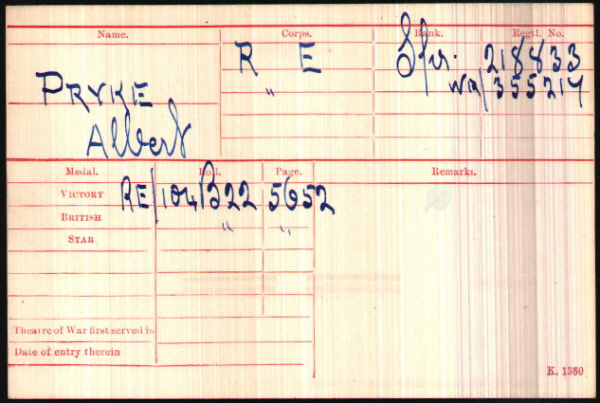 Name. Corps. Rank. Regtl. No.
R E Spr. 218833
PRYKE " WR/355214
Albert
Medal. Roll. Page. Remarks.
VICTORY RE/104B22 5652
BRITISH " "
STAR
Theatre of War first served in
Date of entry therein
K. 1380